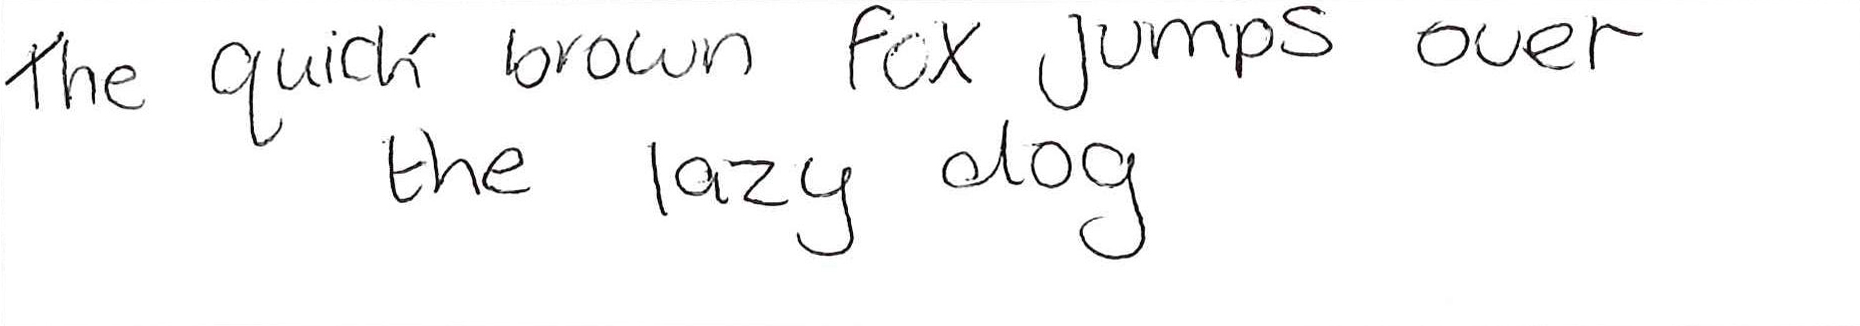 The quick brown fox jumps over
the lazy dog